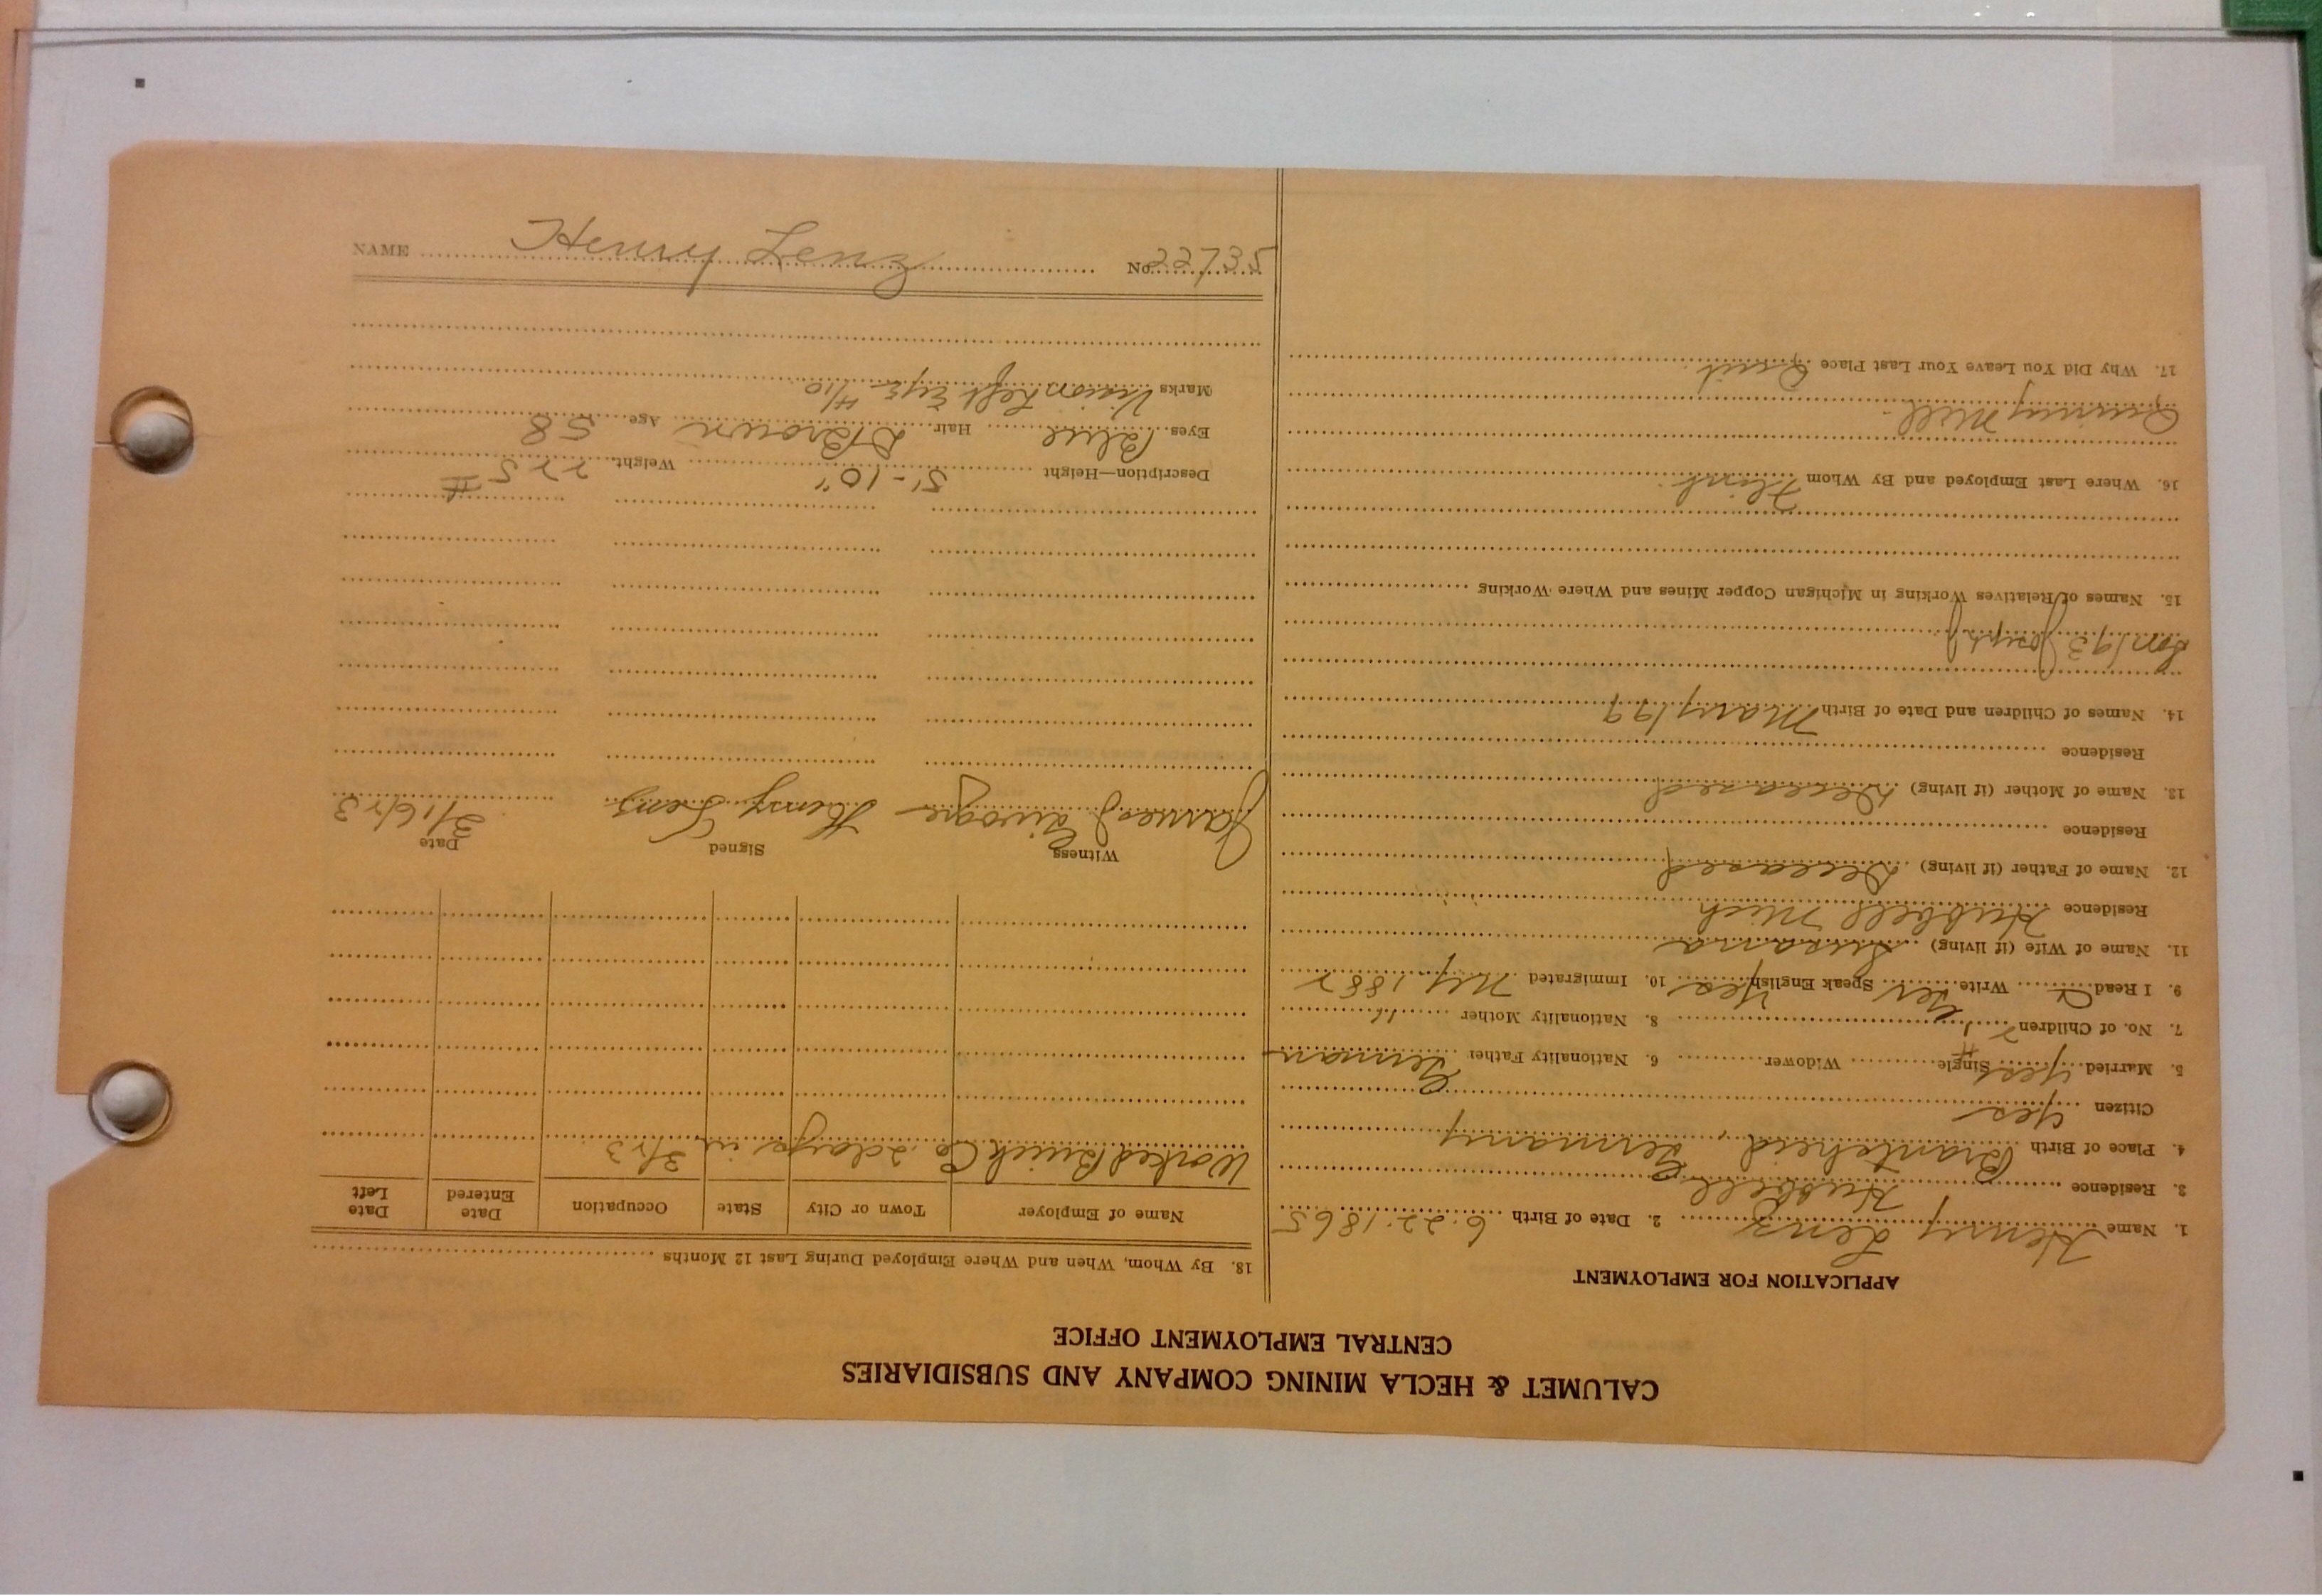 CALUMET & HECLA MINING COMPANY AND SUBSIDIARIES
CENTRAL EMPLOYMENT OFFICE
APPLICATION FOR EMPLOYMENT
1. Name Henry Lenz 2. Date of Birth 6.22.1865
3. Residence Hubbell
4. Place of Birth Germany
Citizen Yes
5. Married Yes Single Widower 6. Nationality Father German
7. No. of Children 2 8. Nationality Mother "
9. I Read Write Speak English Yes 10. Immigrated 1882
11. Name of Wife (if living) Susana
Residence Hubbell Mich
12. Name of Father (if living) Deceased
Residence
13. Name of Mother (if living) Deceased
Residence
14. Names of Children and Date of Birth Mary 19
Joseph
15. Names of Relatives Working in Michigan Copper Mines and Where Working
16. Where Last Employed and By Whom Flint
Quincy Mill.
17. Why Did You Leave Your Last Place Quit.
18. By Whom, When and Where Employed During Last 12 Months
Name of Employer Town or City State Occupation Date Entered Date Left
Worked Buick Co. 2 days in 3/23
Witness Signed Date
James Henry Lenz 3/16/23
Description—Height 5'-10" Weight 225 #
Eyes Blue Hair D Brown Age 58
Marks Vision Left Eye 4/10
NAME Henry Lenz No. 22735